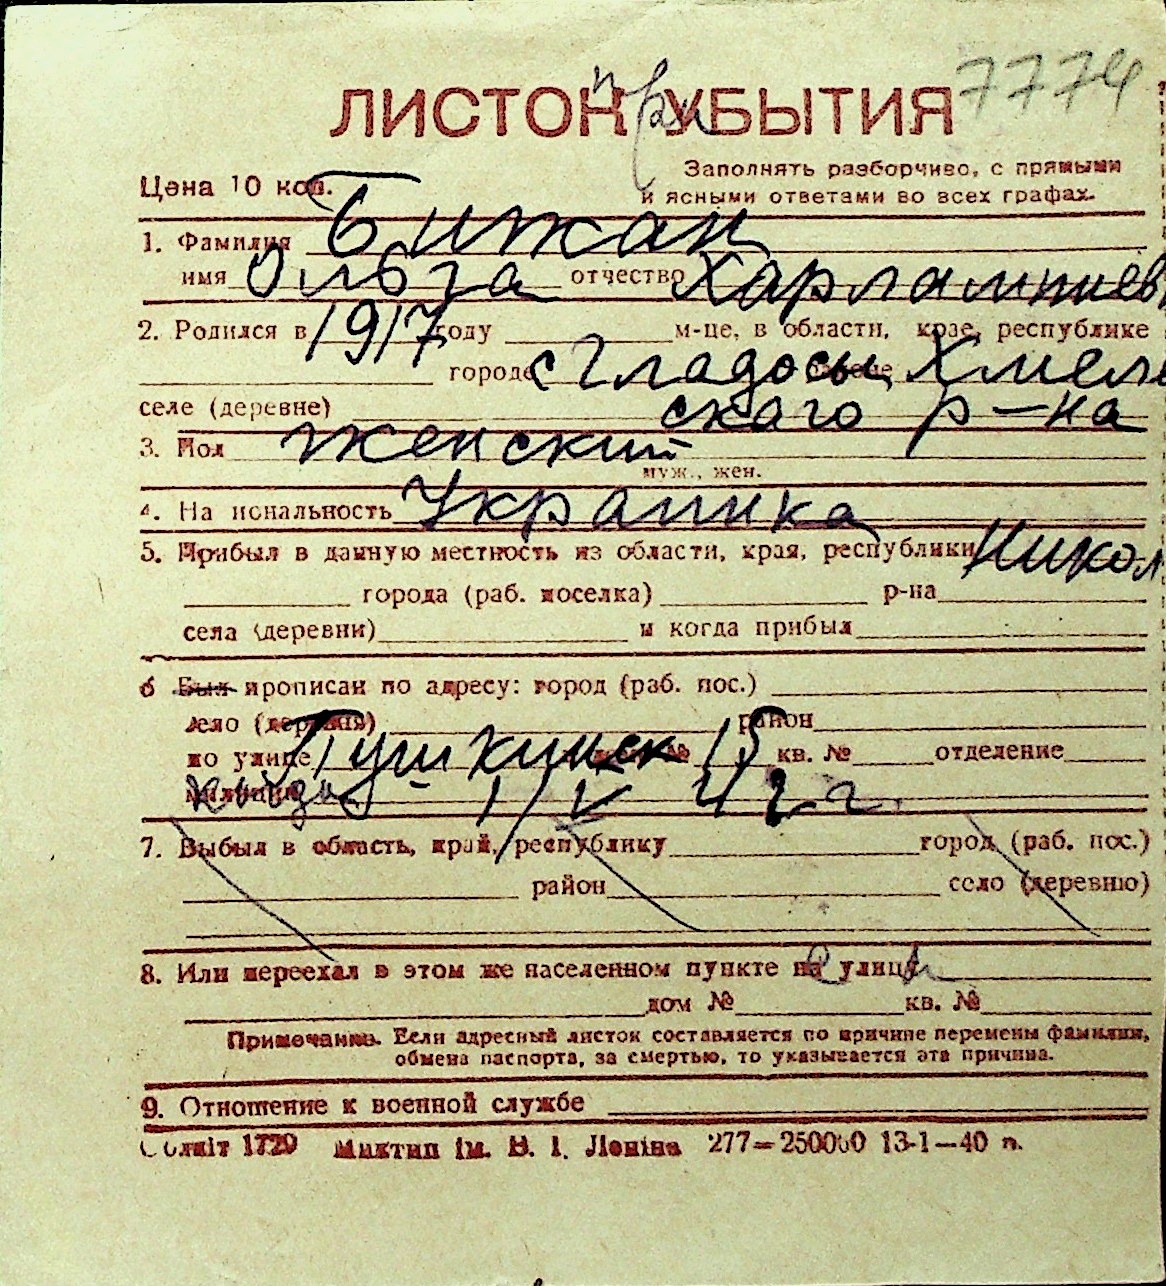 7774
ЛИСТОК УБЫТИЯ
при
Цена 10 коп.
Заполнять разборчиво, с прямыми
и ясными ответами во всех графах.
1. Фамилия Бижан
имя Ольга отчество Харлампиев
2. Родился в 1917 году м-це, в области, крае, республике
городе с Гладосы Хмель
селе (деревне) ского р-на
3. Пол женский
муж., жен.
4. Национальность Украинка
5. Прибыл в данную местность из области, края, республики Никол
города (раб. поселка) р-на
села (деревни) и когда прибыл
6 Был прописан по адресу: город (раб. пос.)
село (деревня) район
по улице Пушкинск 15 кв. № отделение
милиции 1/V 42 г.
7. Выбыл в область, край, республику город (раб. пос.)
район село (деревню)
8. Или переехал в этом же населенном пункте на улицу
дом № кв. №
Примечание. Если адресный листок составляется по причине перемены фамилии,
обмена паспорта, за смертью, то указывается эта причина.
9. Отношение к военной службе
Облліт 1729 Миктип ім. В. І. Леніна 277—250000 13-1—40 п.